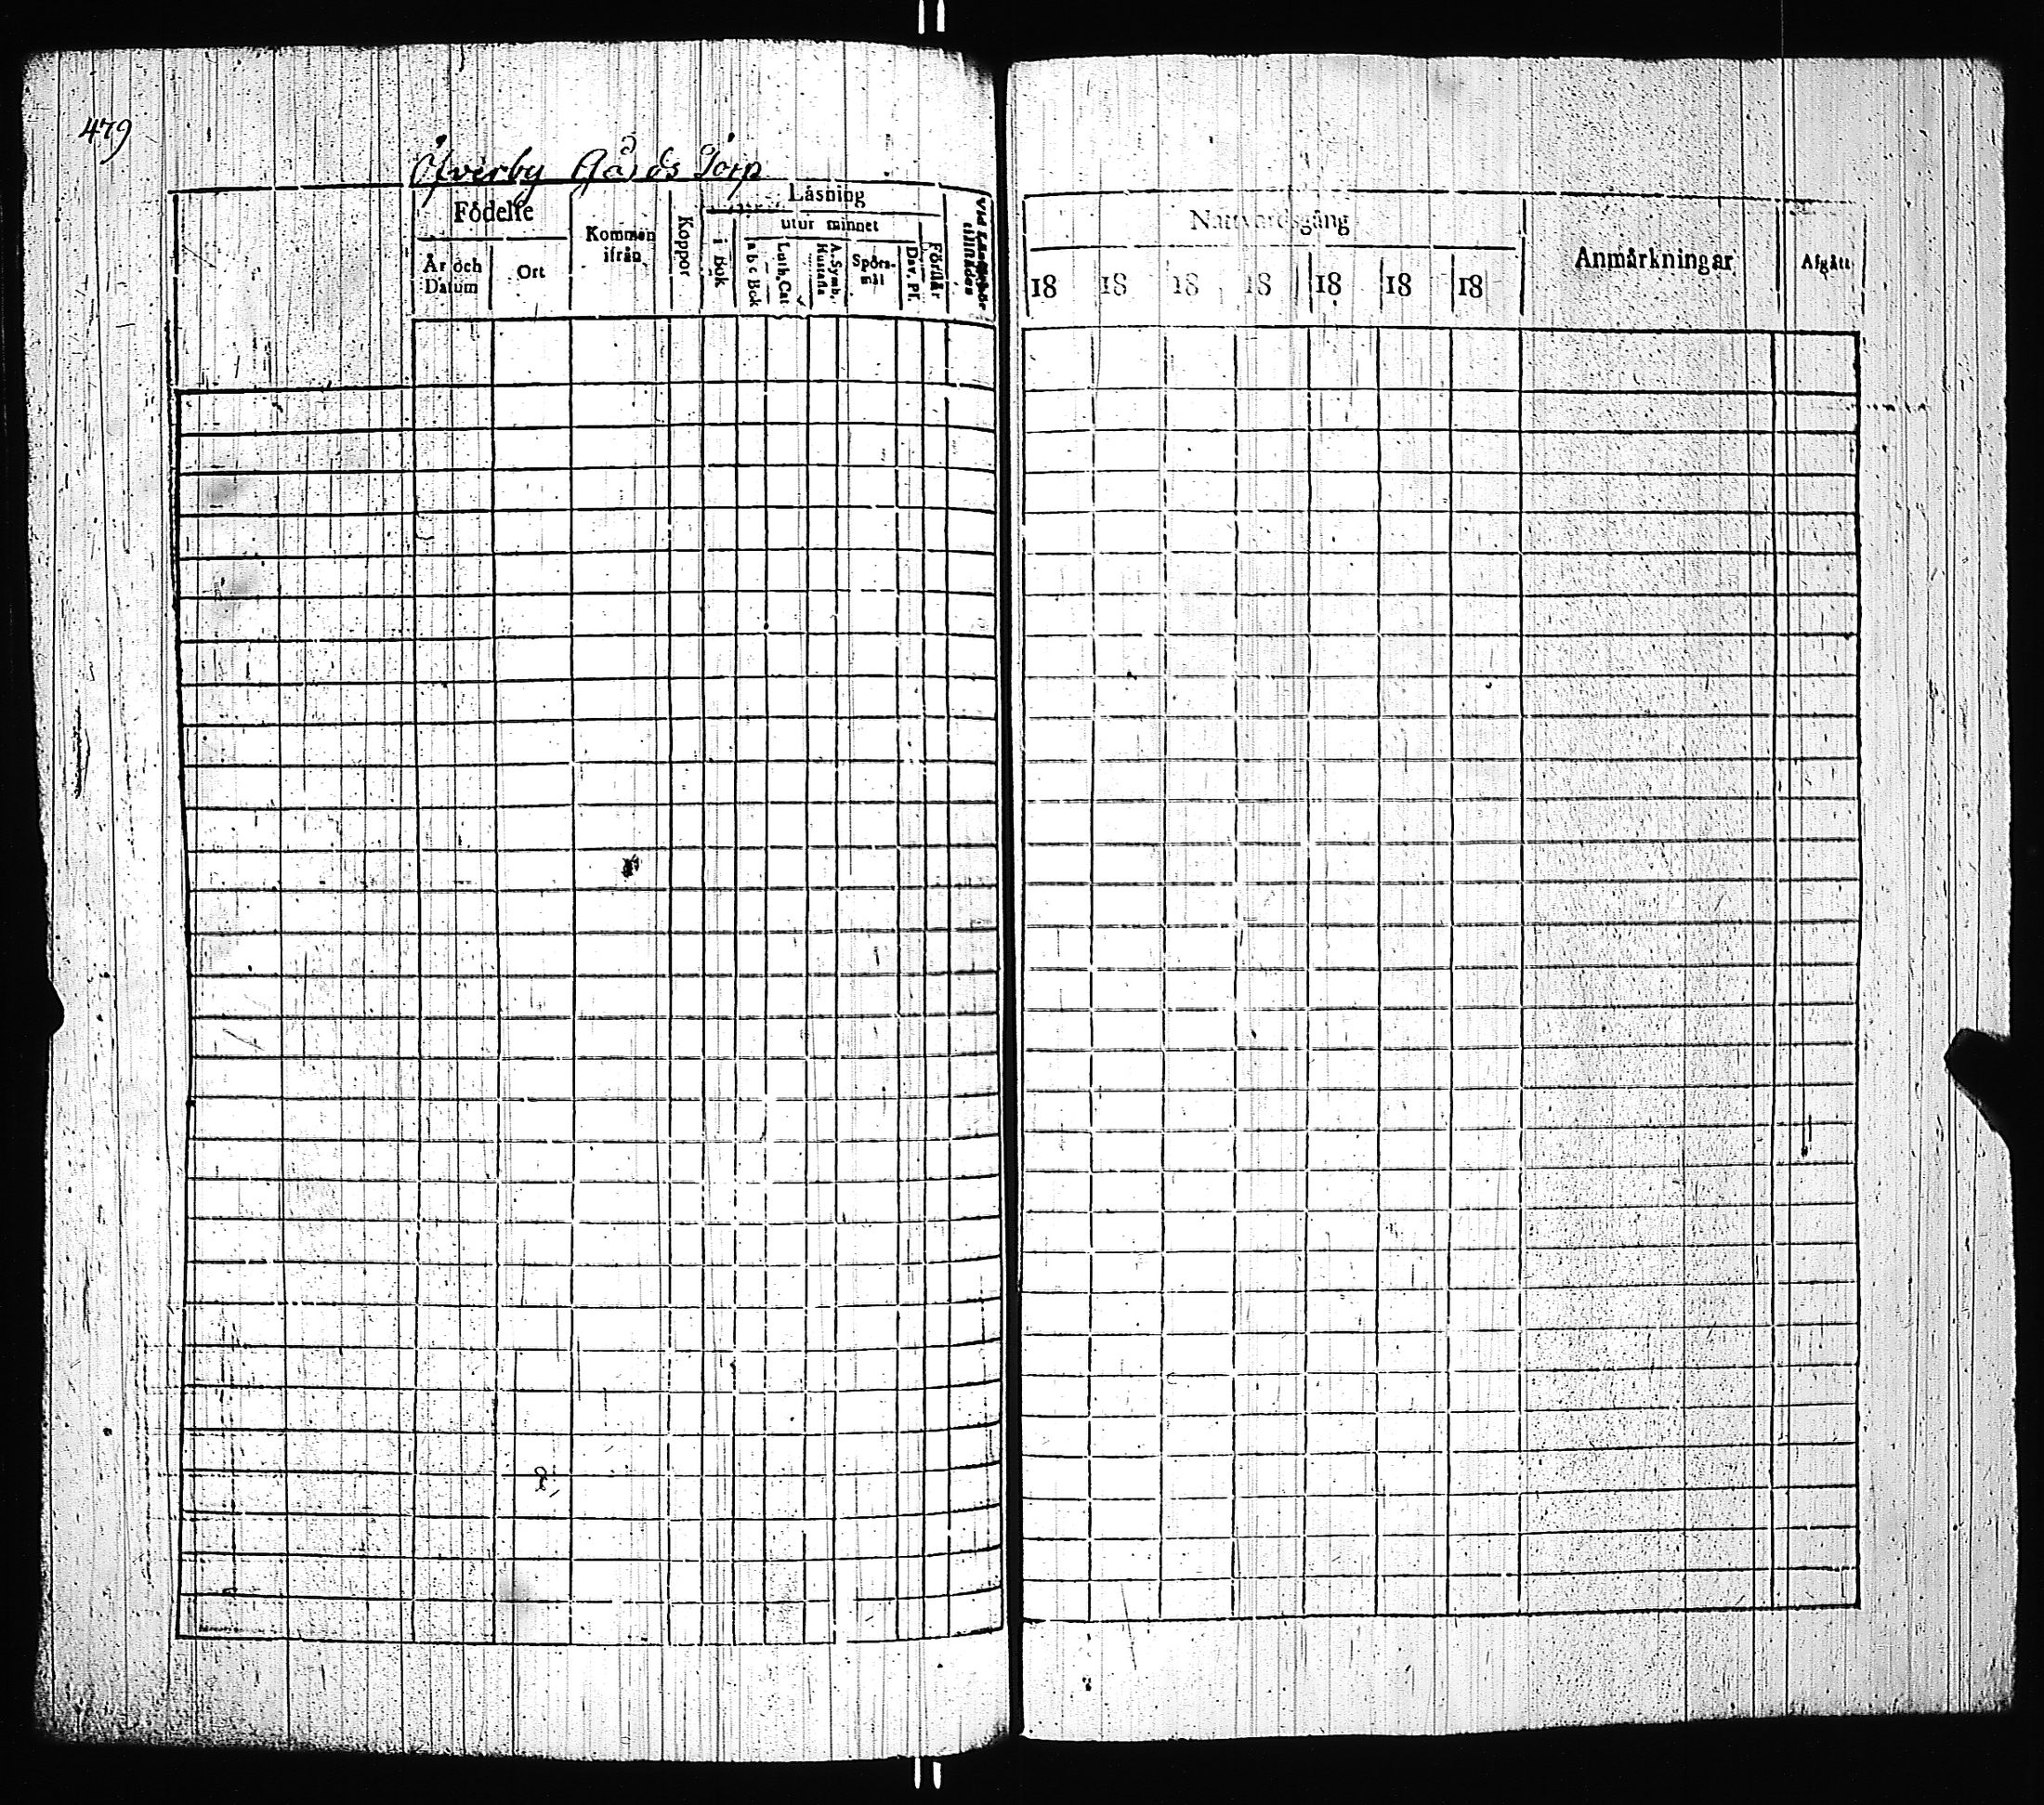 479
Öfverby Gårds Torp
Födelse
År och Datum
Ort
Kommen ifrån
Koppor
Läsning
i Bok
utur minnet
a b c Bok
Luth. Cat.
A. Symb. Hustafla
Spörs-
mål
Dav. Ps.
Förstår
Nattvardsgång
18 18 18 18 18 18 18
Anmärkningar
Afgått